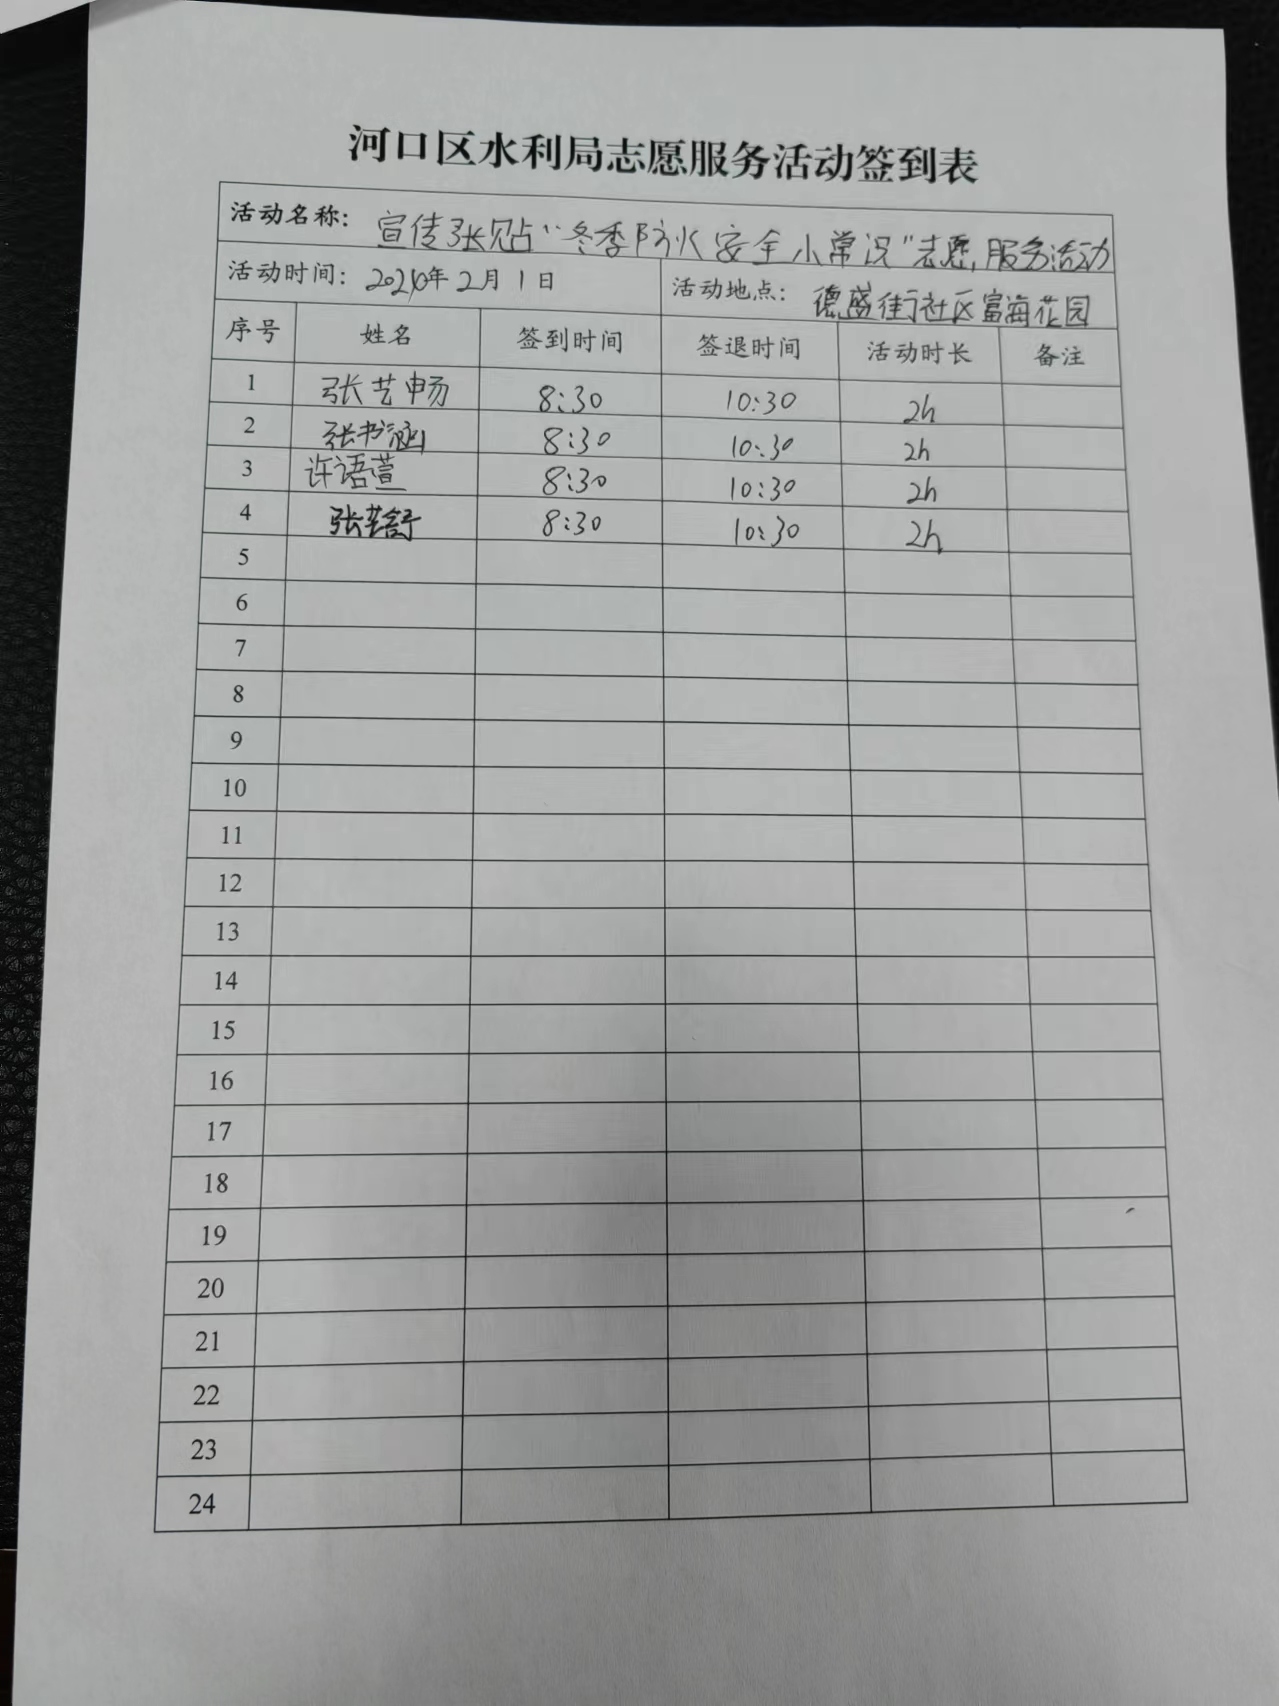 河口区水利局志愿服务活动签到表
活动名称： 宣传张贴“冬季防火安全小常识”志愿服务活动
活动时间： 2024年2月1日 活动地点： 德盛街社区富海花园
序号 姓名 签到时间 签退时间 活动时长 备注
1 张艺畅 8:30 10:30 2h
2 张书涵 8:30 10:30 2h
3 许语萱 8:30 10:30 2h
4 张芸舒 8:30 10:30 2h
5
6
7
8
9
10
11
12
13
14
15
16
17
18
19
20
21
22
23
24